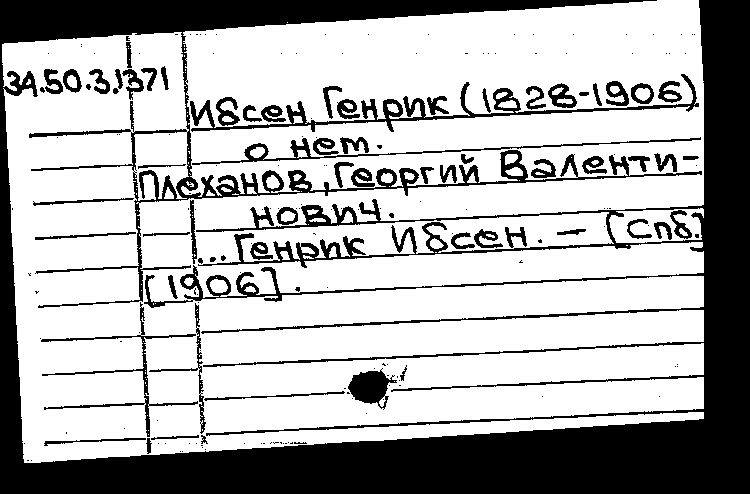 34.50.3.1371
Ибсен, Генрик (1828-1906)
о нет.
Плеханов, Георгий Валенти-
нович.
...Генрик Ибсен. — [Спб.]
[1906].